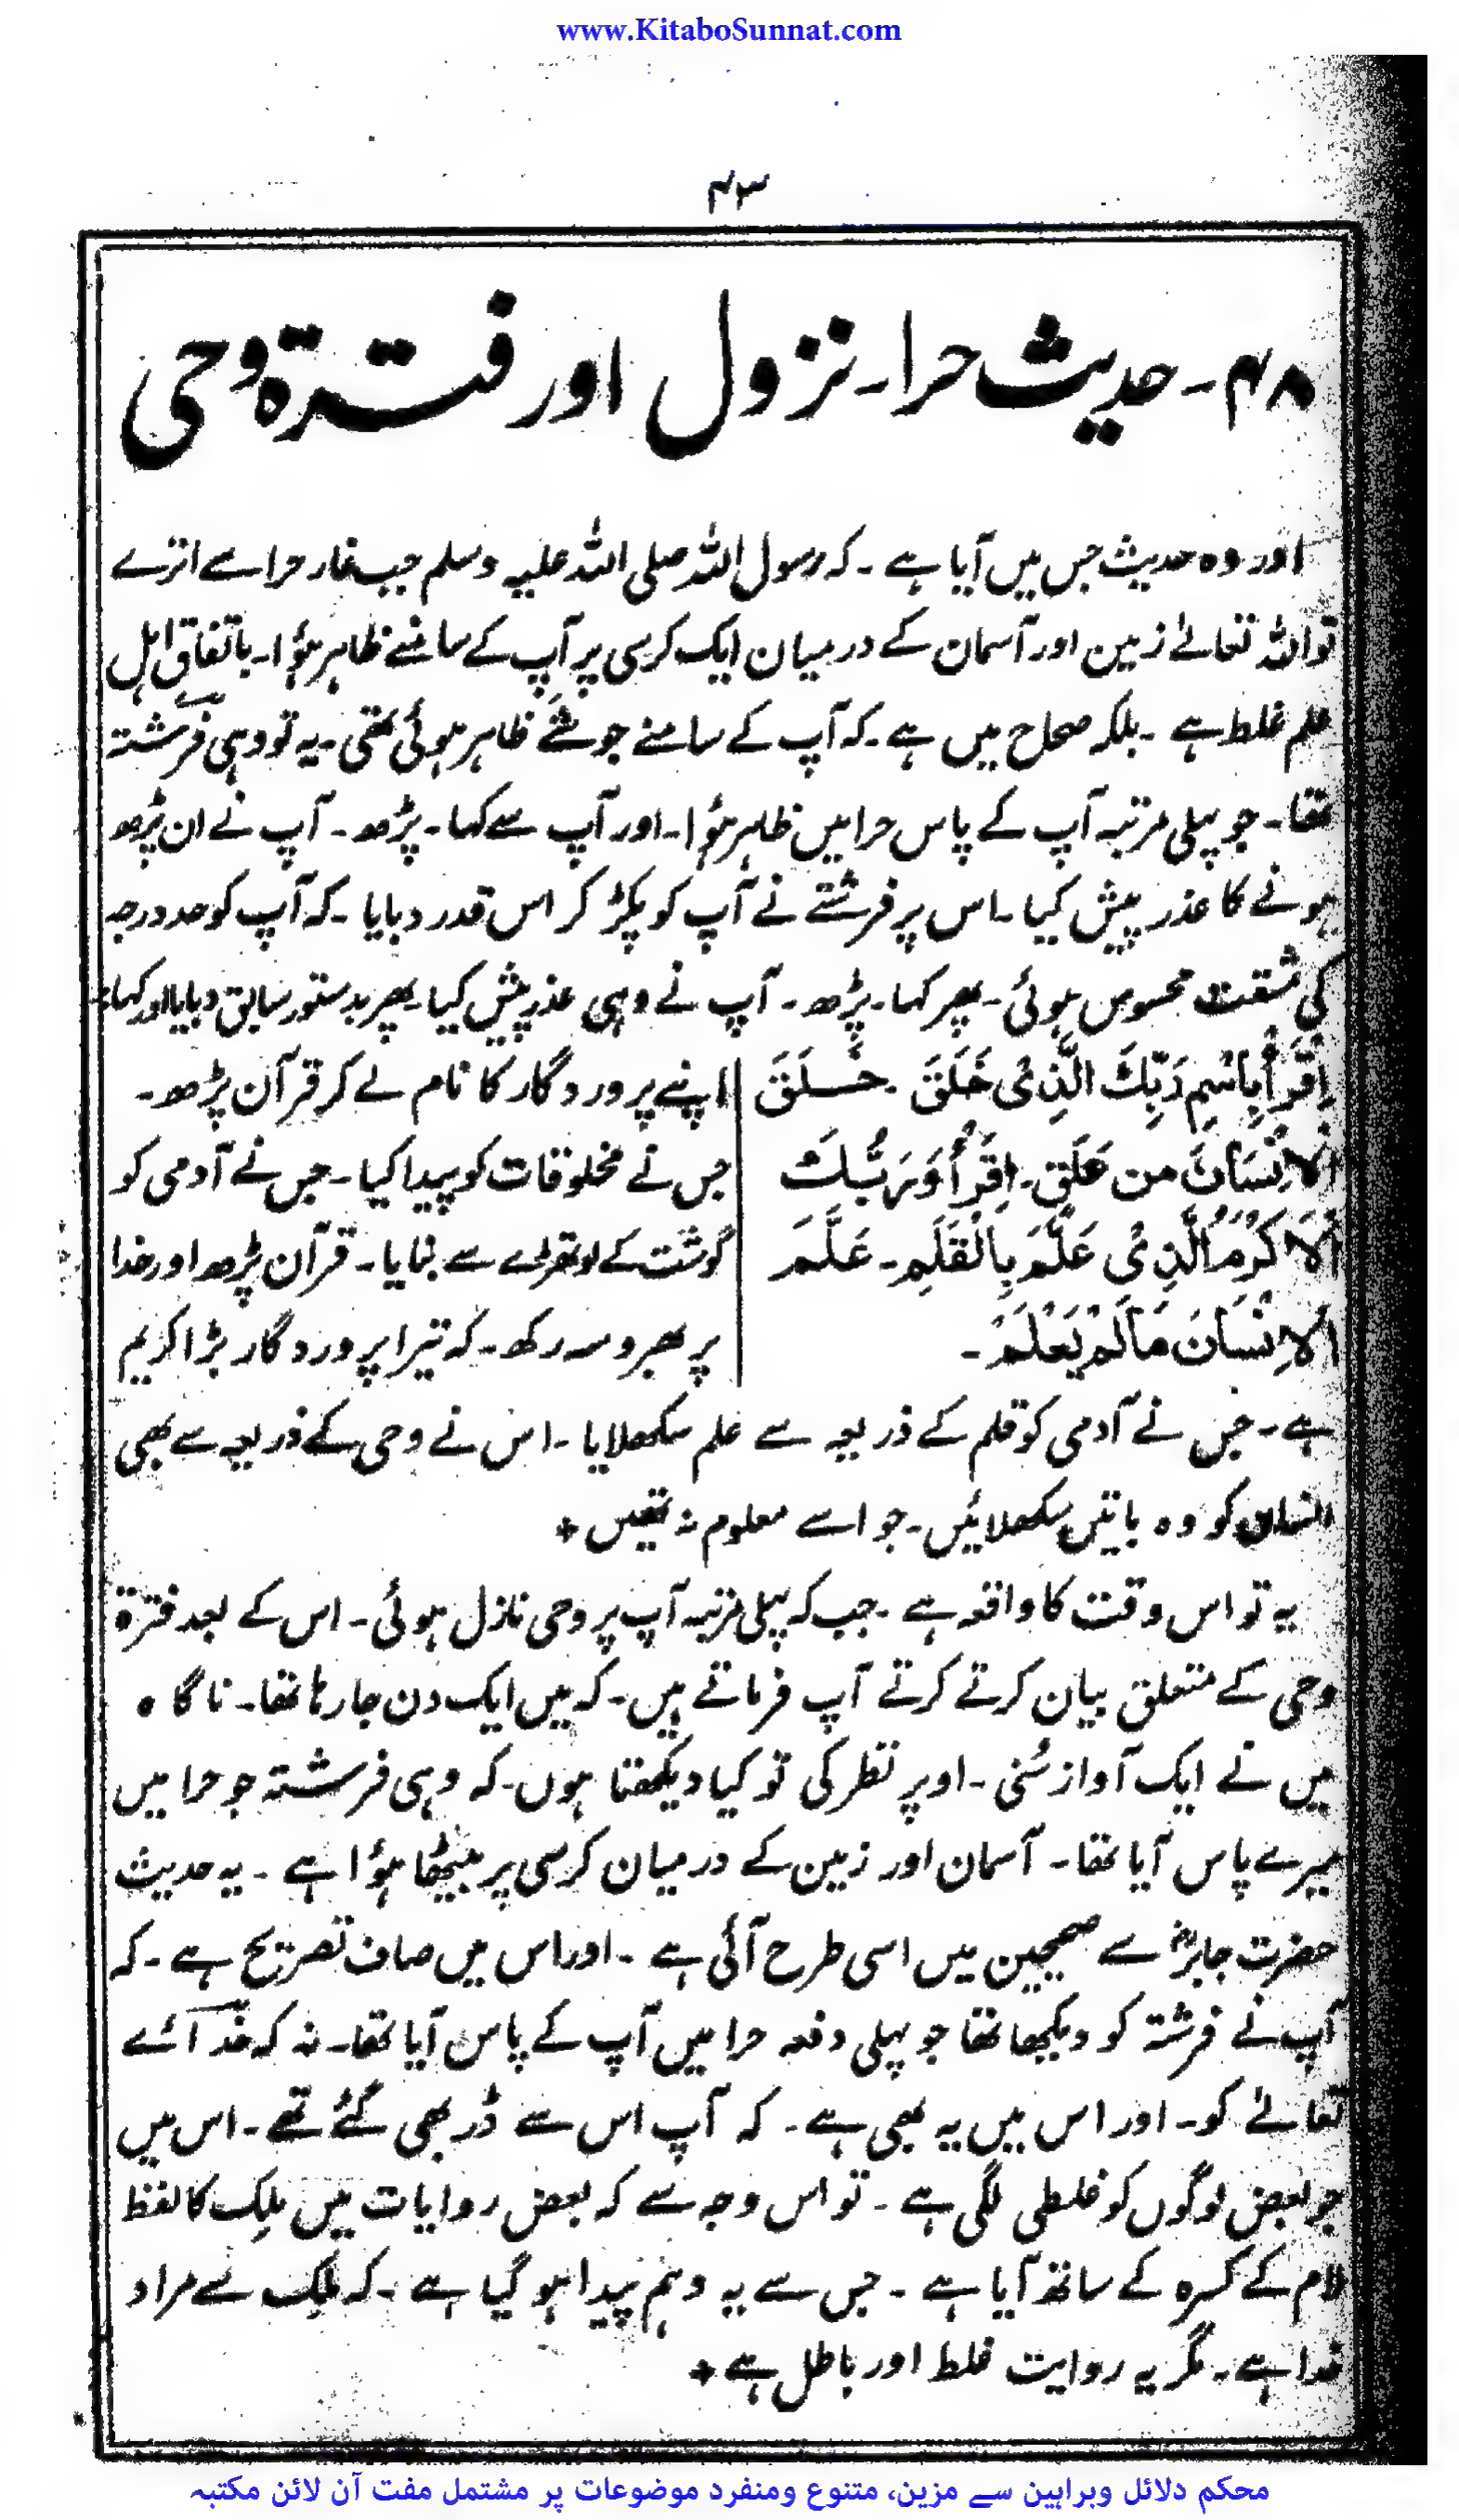 www.KitaboSunnat.com
۴۳
۴۸۔ حدیث حرا۔ نزول اور فترۃ وحی
اور وہ حدیث جس میں آیا ہے ۔ کہ رسول اللہ صلی اللہ علیہ وسلم جب غار حرا سے اترے
تو اللہ تعالےٰ زمین اور آسمان کے درمیان ایک کرسی پر آپ کے سامنے ظاہر ہؤا۔ باتفاق اہل
علم غلط ہے ۔ بلکہ صحاح میں ہے ۔ کہ آپ کے سامنے جو شے ظاہر ہوئی تھی ۔ یہ تو وہی فرشتہ
تھا۔ جو پہلی مرتبہ آپ کے پاس حرا میں ظاہر ہؤا۔ اور آپ سے کہا ۔ پڑھو ۔ آپ نے ان پڑھ
ہونے کا عذر پیش کیا ۔ اس پر فرشتے نے آپ کو پکڑ کر اس قدر دبایا ۔ کہ آپ کو حد درجہ
کی مشقت محسوس ہوئی ۔ پھر کہا ۔ پڑھ ۔ آپ نے وہی عذر پیش کیا ۔ پھر بدستور سابق دبایا اور کہا:
اِقْرَأْ بِاسْمِ رَبِّكَ الَّذِیْ خَلَقَ ۔ خَلَقَ | اپنے پروردگار کا نام لے کر قرآن پڑھ ۔
الْاِنْسَانَ من عَلَقٍ ۔ اِقْرَأْ وَرَبُّكَ | جس نے مخلوقات کو پیدا کیا ۔ جس نے آدمی کو
الْاَكْرَمُ الَّذِیْ عَلَّمَ بِالْقَلَمِ ۔ عَلَّمَ | گوشت کے لوتھڑے سے بنایا ۔ قرآن پڑھ اور خدا
الْاِنْسَانَ مَا لَمْ یَعْلَمْ ۔ | پر بھروسہ رکھ ۔ کہ تیرا پروردگار بڑا کریم
ہے ۔ جس نے آدمی کو قلم کے ذریعہ سے علم سکھلایا ۔ اس نے وحی کے ذریعہ سے بھی
انسان کو وہ باتیں سکھلائیں ۔ جو اسے معلوم نہ تھیں +
یہ تو اس وقت کا واقعہ ہے ۔ جب کہ پہلی مرتبہ آپ پر وحی نازل ہوئی ۔ اس کے بعد فترۃ
وحی کے متعلق بیان کرتے کرتے آپ فرماتے ہیں ۔ کہ میں ایک دن جا رہا تھا ۔ ناگاہ
میں نے ایک آواز سُنی ۔ اوپر نظر کی تو کیا دیکھتا ہوں ۔ کہ وہی فرشتہ جو حرا میں
میرے پاس آیا تھا ۔ آسمان اور زمین کے درمیان کرسی پر بیٹھا ہؤا ہے ۔ یہ حدیث
حضرت جابرؓ سے صحیحین میں اسی طرح آئی ہے ۔ اور اس میں صاف تصریح ہے ۔ کہ
آپ نے فرشتہ کو دیکھا تھا جو پہلی دفعہ حرا میں آپ کے پاس آیا تھا ۔ نہ کہ خدائے
تعالےٰ کو ۔ اور اس میں یہ بھی ہے ۔ کہ آپ اس سے ڈر بھی گئے تھے ۔ اس میں
جو بعض لوگوں کو غلطی لگی ہے ۔ تو اس وجہ سے کہ بعض روایات میں مَلِک کا لفظ
لام کے کسرہ کے ساتھ آیا ہے ۔ جس سے یہ وہم پیدا ہو گیا ہے ۔ کہ مَلِک سے مراد
خدا ہے ۔ مگر یہ روایت غلط اور باطل ہے +
محکم دلائل وبراہین سے مزین، متنوع ومنفرد موضوعات پر مشتمل مفت آن لائن مکتبہ